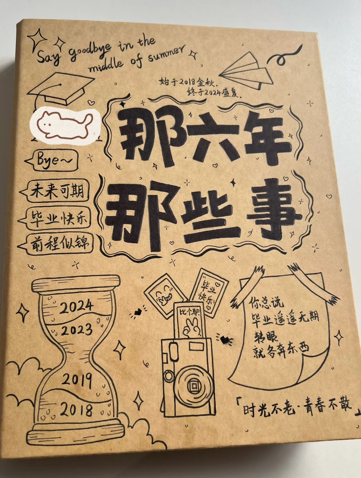 Say goodbye in the
middle of summer
始于2018金秋,
终于2024盛夏.
那六年
那些事
Bye~
未来可期
毕业快乐
前程似锦
2024
2023
2019
2018
毕业
快乐
比个耶
你总说
毕业遥遥无期
转眼
就各奔东西
「时光不老·青春不散」